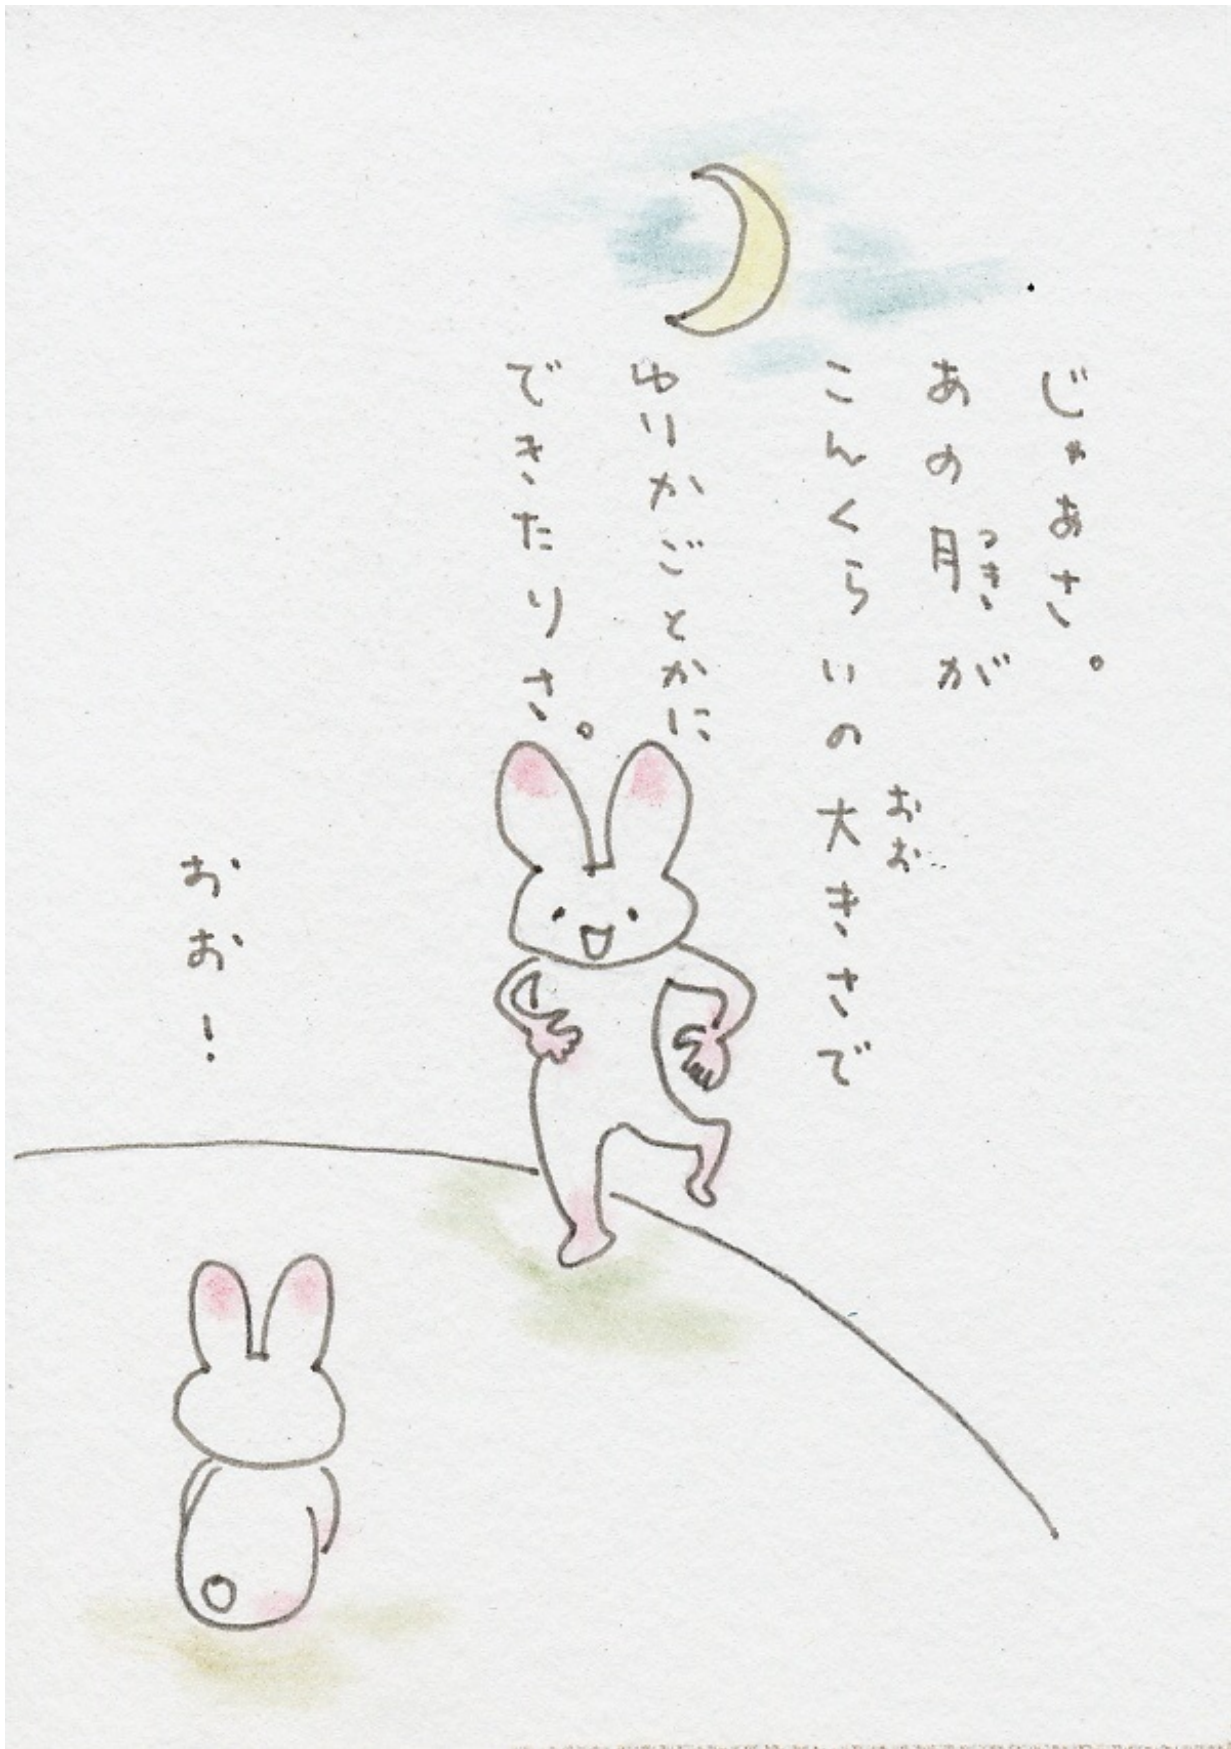 じゃあさ。
あの月が
つき
こんくらいの大きさで
おお
ゆりかごとかに
できたりさ。
おお!